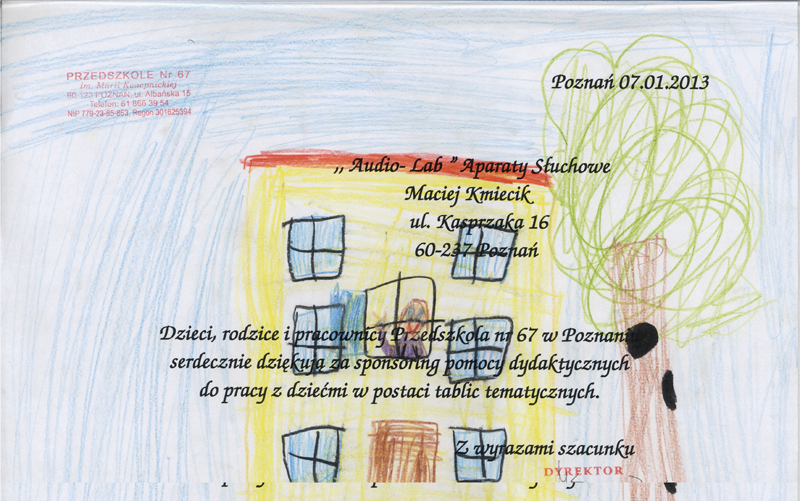 PRZEDSZKOLE Nr 67
im. Marii Konopnickiej
60-123 POZNAŃ, ul. Albańska 15
Telefon: 61 866 39 54
NIP 779-23-85-853, Regon 301625394
Poznań 07.01.2013
,, Audio- Lab ” Aparaty Słuchowe
Maciej Kmiecik
ul. Kasprzaka 16
60-237 Poznań
Dzieci, rodzice i pracownicy Przedszkola nr 67 w Poznaniu
serdecznie dziękują za sponsoring pomocy dydaktycznych
do pracy z dziećmi w postaci tablic tematycznych.
Z wyrazami szacunku
DYREKTOR